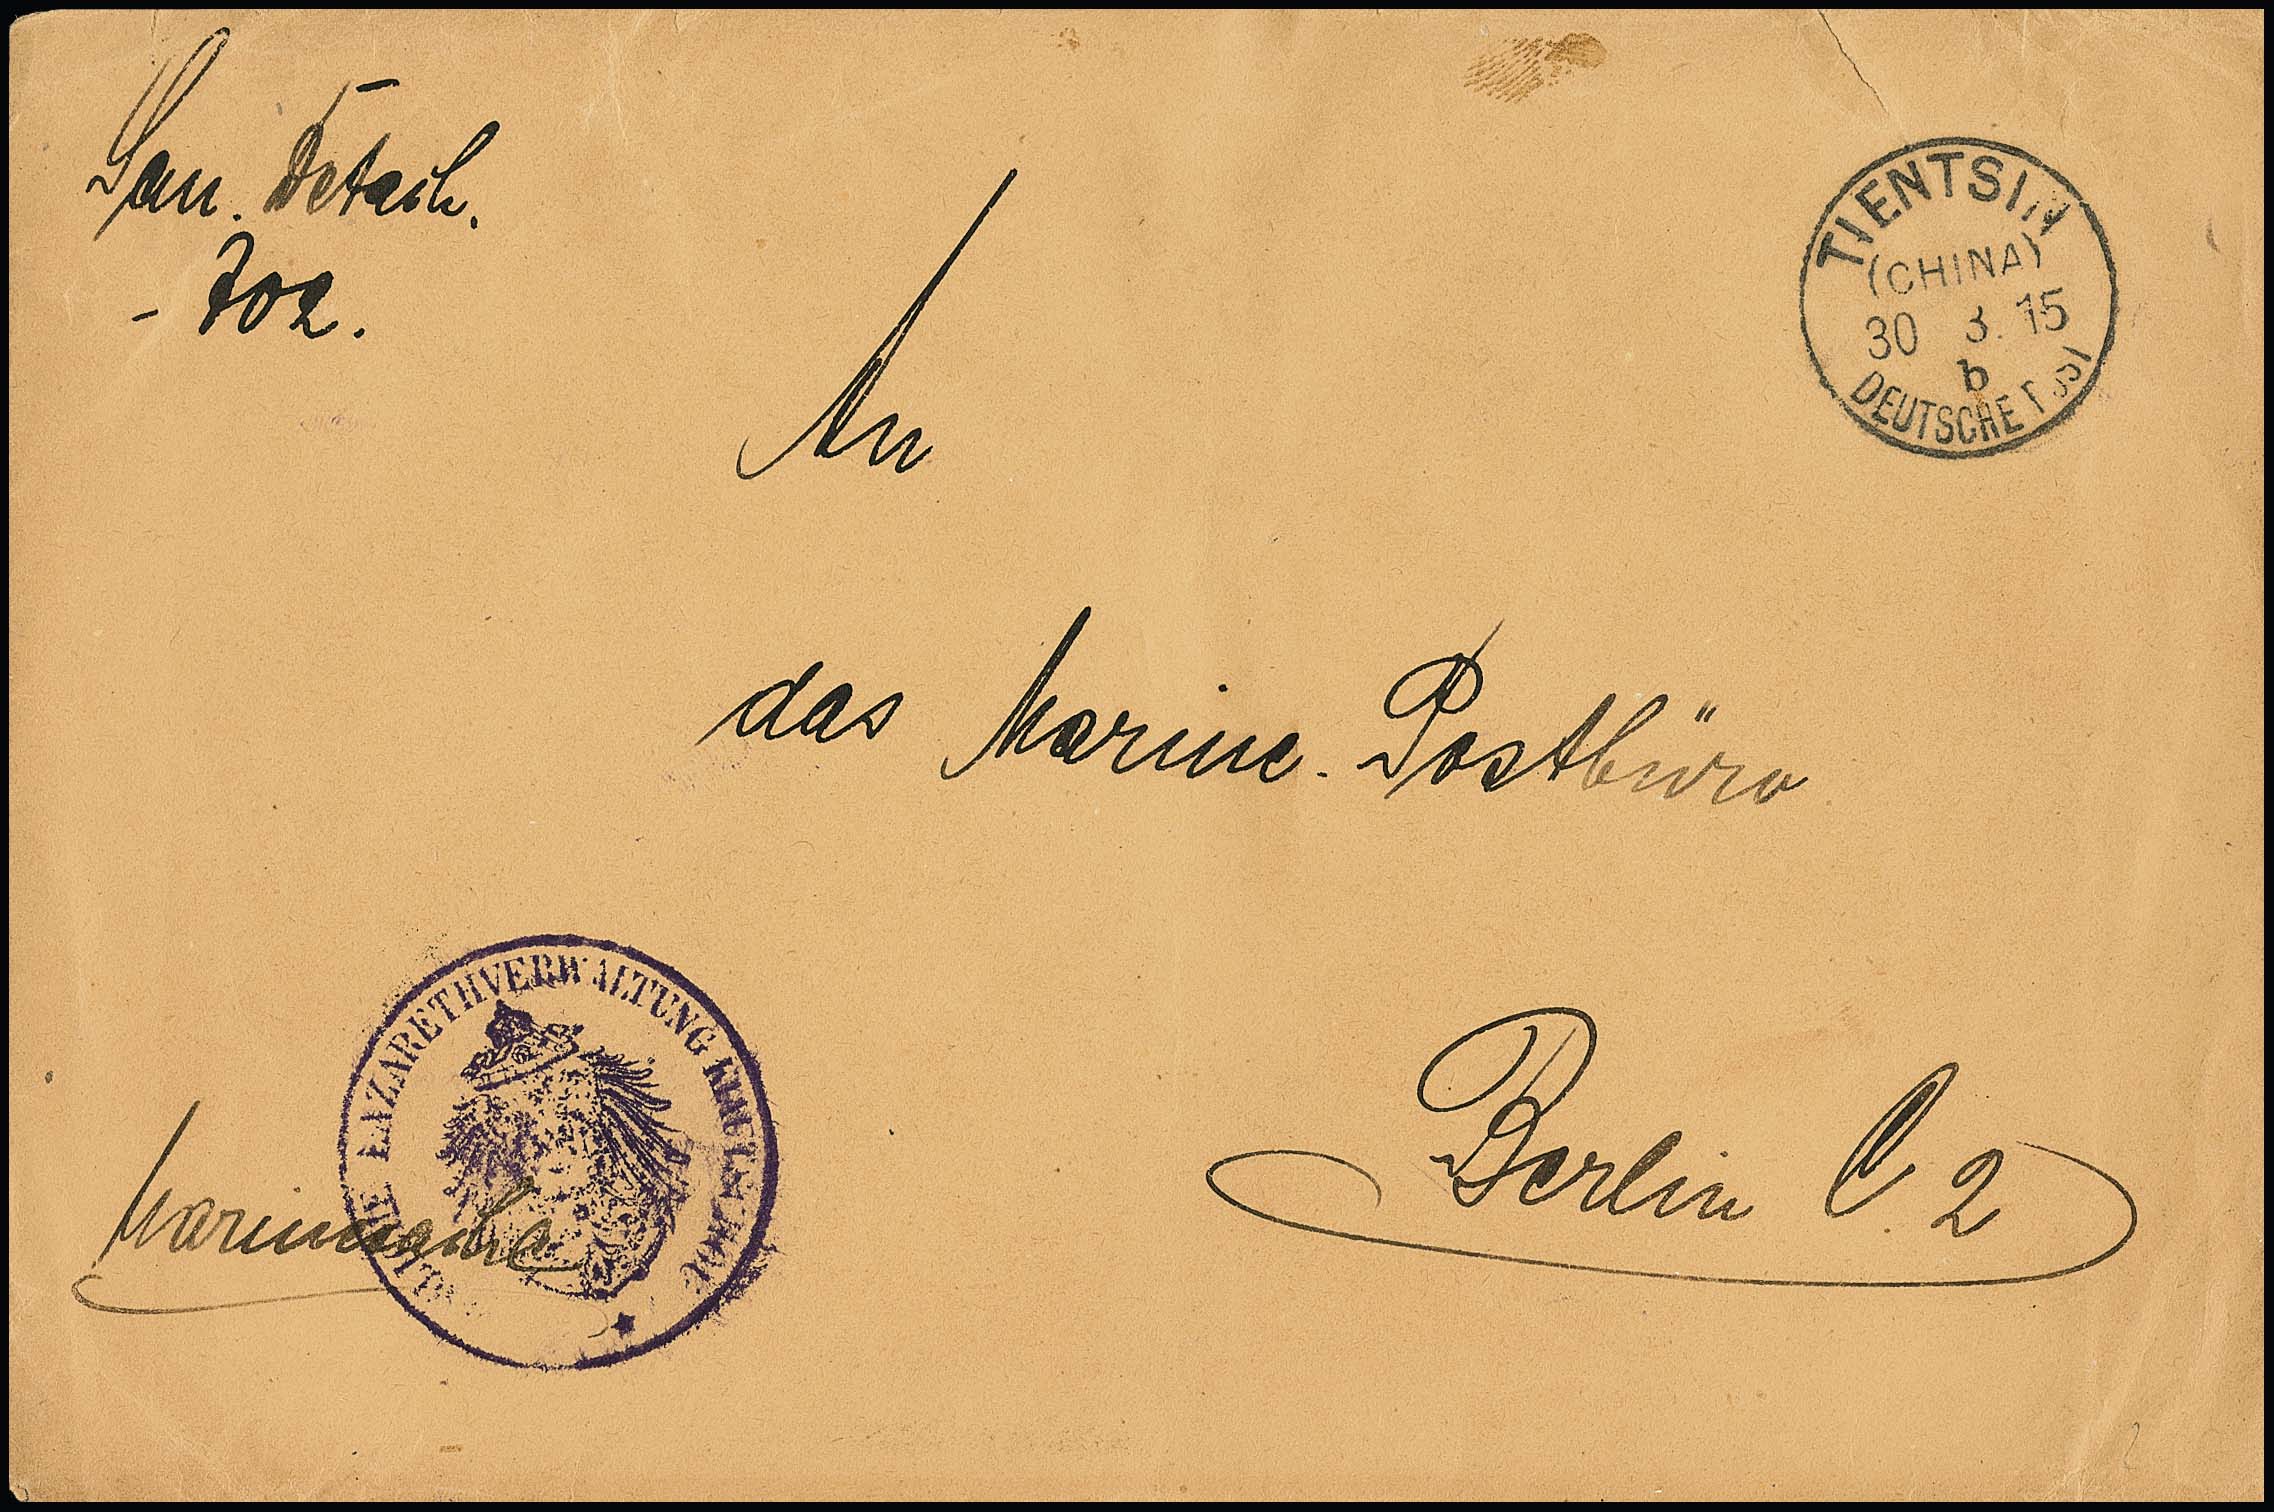 San. Detach.
- 702.
TIENTSIN
(CHINA)
30 3. 15
b
DEUTSCHE
An
das Marine-Postbüro
Berlin C. 2
LAZARETHVERWALTUNG
Marinesache